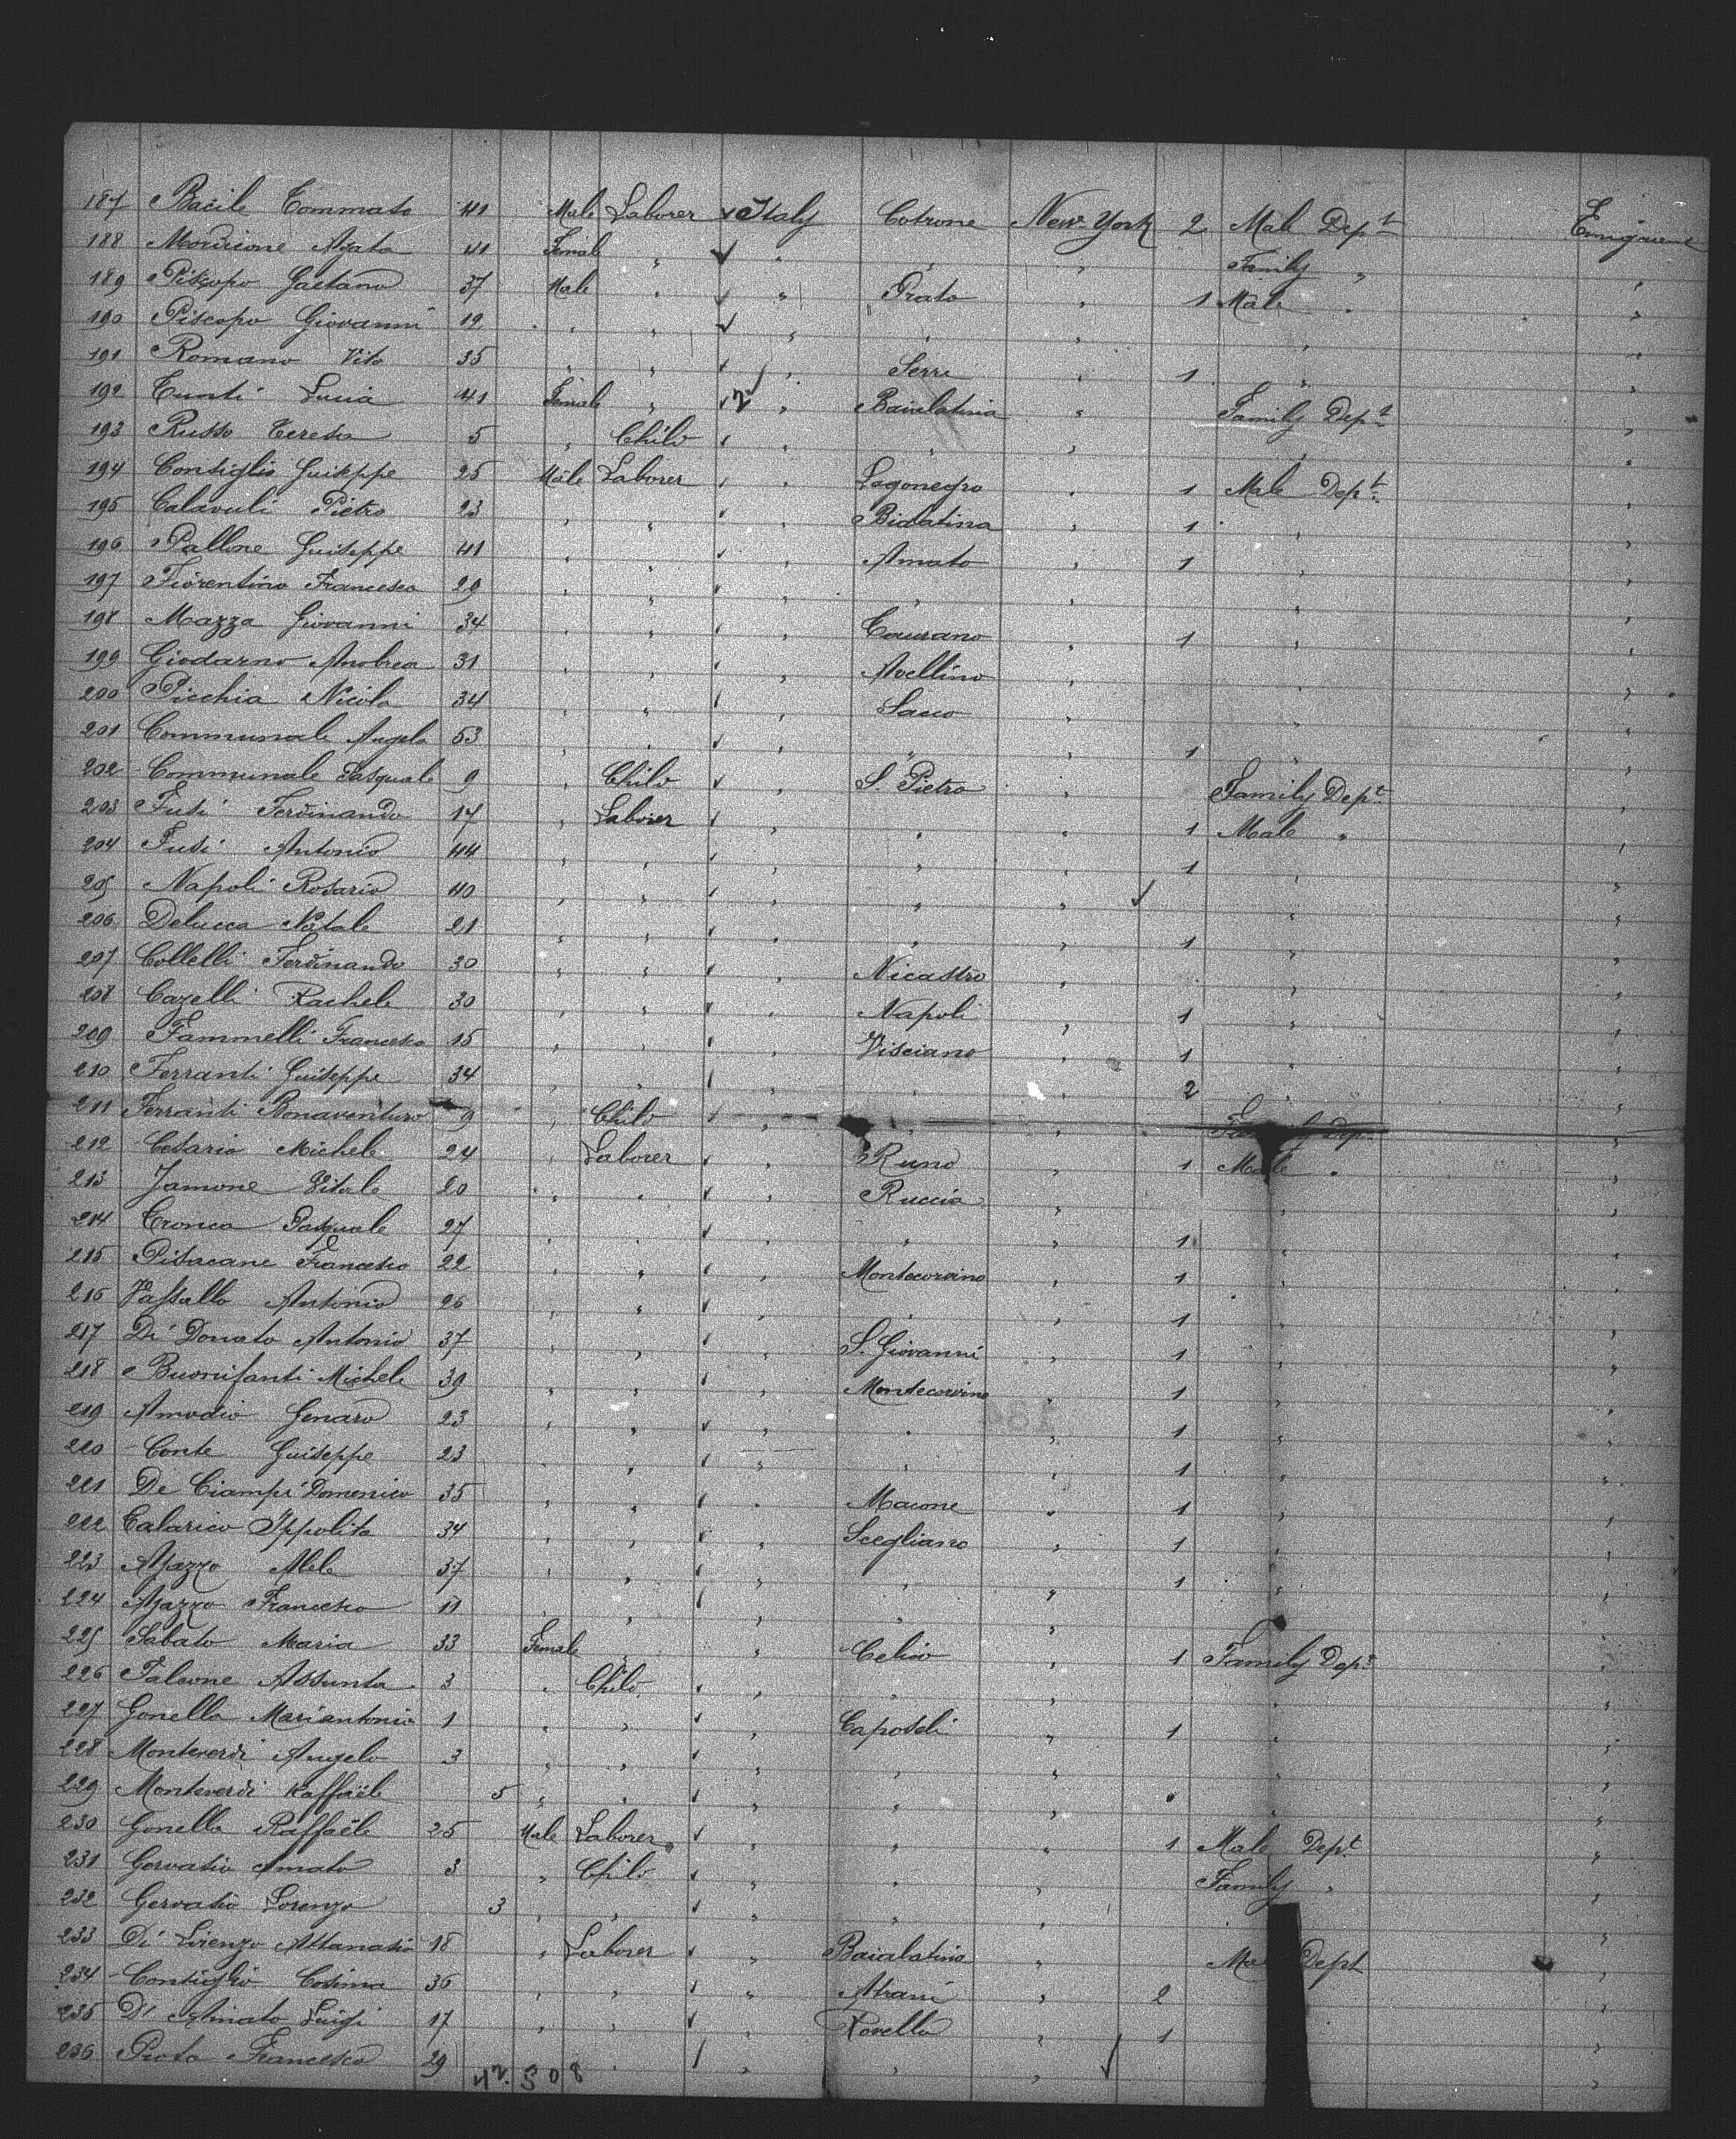 187 Bacile Tommaso 41 Male Laborer Italy Cotrone New-York 2 Male Dept Emigrant
188 Agata 41 Female " " " " Family "
189 Piscopo Gaetano 37 Male " " Prato " 1 Male " "
190 Piscopo Giovanni 19 " " " " " " "
191 Romano Vito 35 " " " Serre " 1 " "
192 Tunti Lucia 41 Female " " " Family Dept "
193 Russo Teresa 5 " Child " " " " "
194 Consiglio Guiseppe 25 Male Laborer " Lagonegro " 1 Male Dept "
195 Calavuli Pietro 23 " " " " 1 " "
196 Pallone Guiseppe 41 " " " Amato " 1 " "
197 Fiorentino Francesco 29 " " " " " " "
198 Mazza Giovanni 34 " " " " 1 " "
199 Giodarno Andrea 31 " " " Avellino " " "
200 Picchia Nicola 34 " " " Sacco " " "
201 Communale Angelo 53 " " " " " 1 " "
202 Communale Pasquale 9 " Child " S. Pietro " Family Dept "
203 Fusi Ferdinando 17 " Laborer " " " 1 Male " "
204 Fusi Antonio 44 " " " " " 1 " "
205 Napoli Rosario 40 " " " " " " "
206 Delucca Natale 21 " " " " " 1 " "
207 Collelli Ferdinando 30 " " " Nicastro " " "
208 Cazelli Rachele 30 " " " Napoli " 1 " "
209 Fammelli Francesco 15 " " " Visciano " 1 " "
210 Ferranti Guiseppe 34 " " " " " 2 " "
211 Ferranti Bonaventuro 9 " Child " " " Family Dept "
212 Cesario Michele 24 " Laborer " Runo " 1 Male " "
213 Jamone Vitale 20 " " " Ruccia " " "
214 Cronca Pasquale 27 " " " " " 1 " "
215 Pisacane Francesco 22 " " " Montecorvino " 1 " "
216 Vassallo Antonio 26 " " " " " 1 " "
217 Di Donato Antonio 37 " " " S. Giovanni " 1 " "
218 Buonifanti Michele 39 " " " Montecorvino " 1 " "
219 Amodio Genaro 23 " " " " " 1 " "
220 Conte Guiseppe 23 " " " " " 1 " "
221 De Ciampi Domenico 35 " " " Maione " 1 " "
222 Calarico Ippolito 34 " " " Scegliano " 1 " "
223 37 " " " " " 1 " "
224 Francesco 11 " " " " " " "
225 Sabato Maria 33 Female " " Celico " 1 Family Dept "
226 Falcone Assunta 3 " Child " " " " "
227 Gonella Mariantonia 1 " " " Caposeli " 1 " "
228 Monteverdi Angelo 3 " " " " " " "
229 Monteverdi Raffaele 5 " " " " " " "
230 Gonella Raffaele 25 Male Laborer " " " 1 Male Dept "
231 Gervasio Amato 3 " Child " " " Family " "
232 Gervasio Lorenzo 3 " " " " " "
233 Di Lorenzo Attanasio 18 " Laborer " Baialatina " Dept "
234 Consiglio Cosimo 36 " " " Atrani " 2 "
235 D' Amato Luigi 17 " " " Rovella " 1 "
236 Proto Francesco 29 " " " " "
47. 508